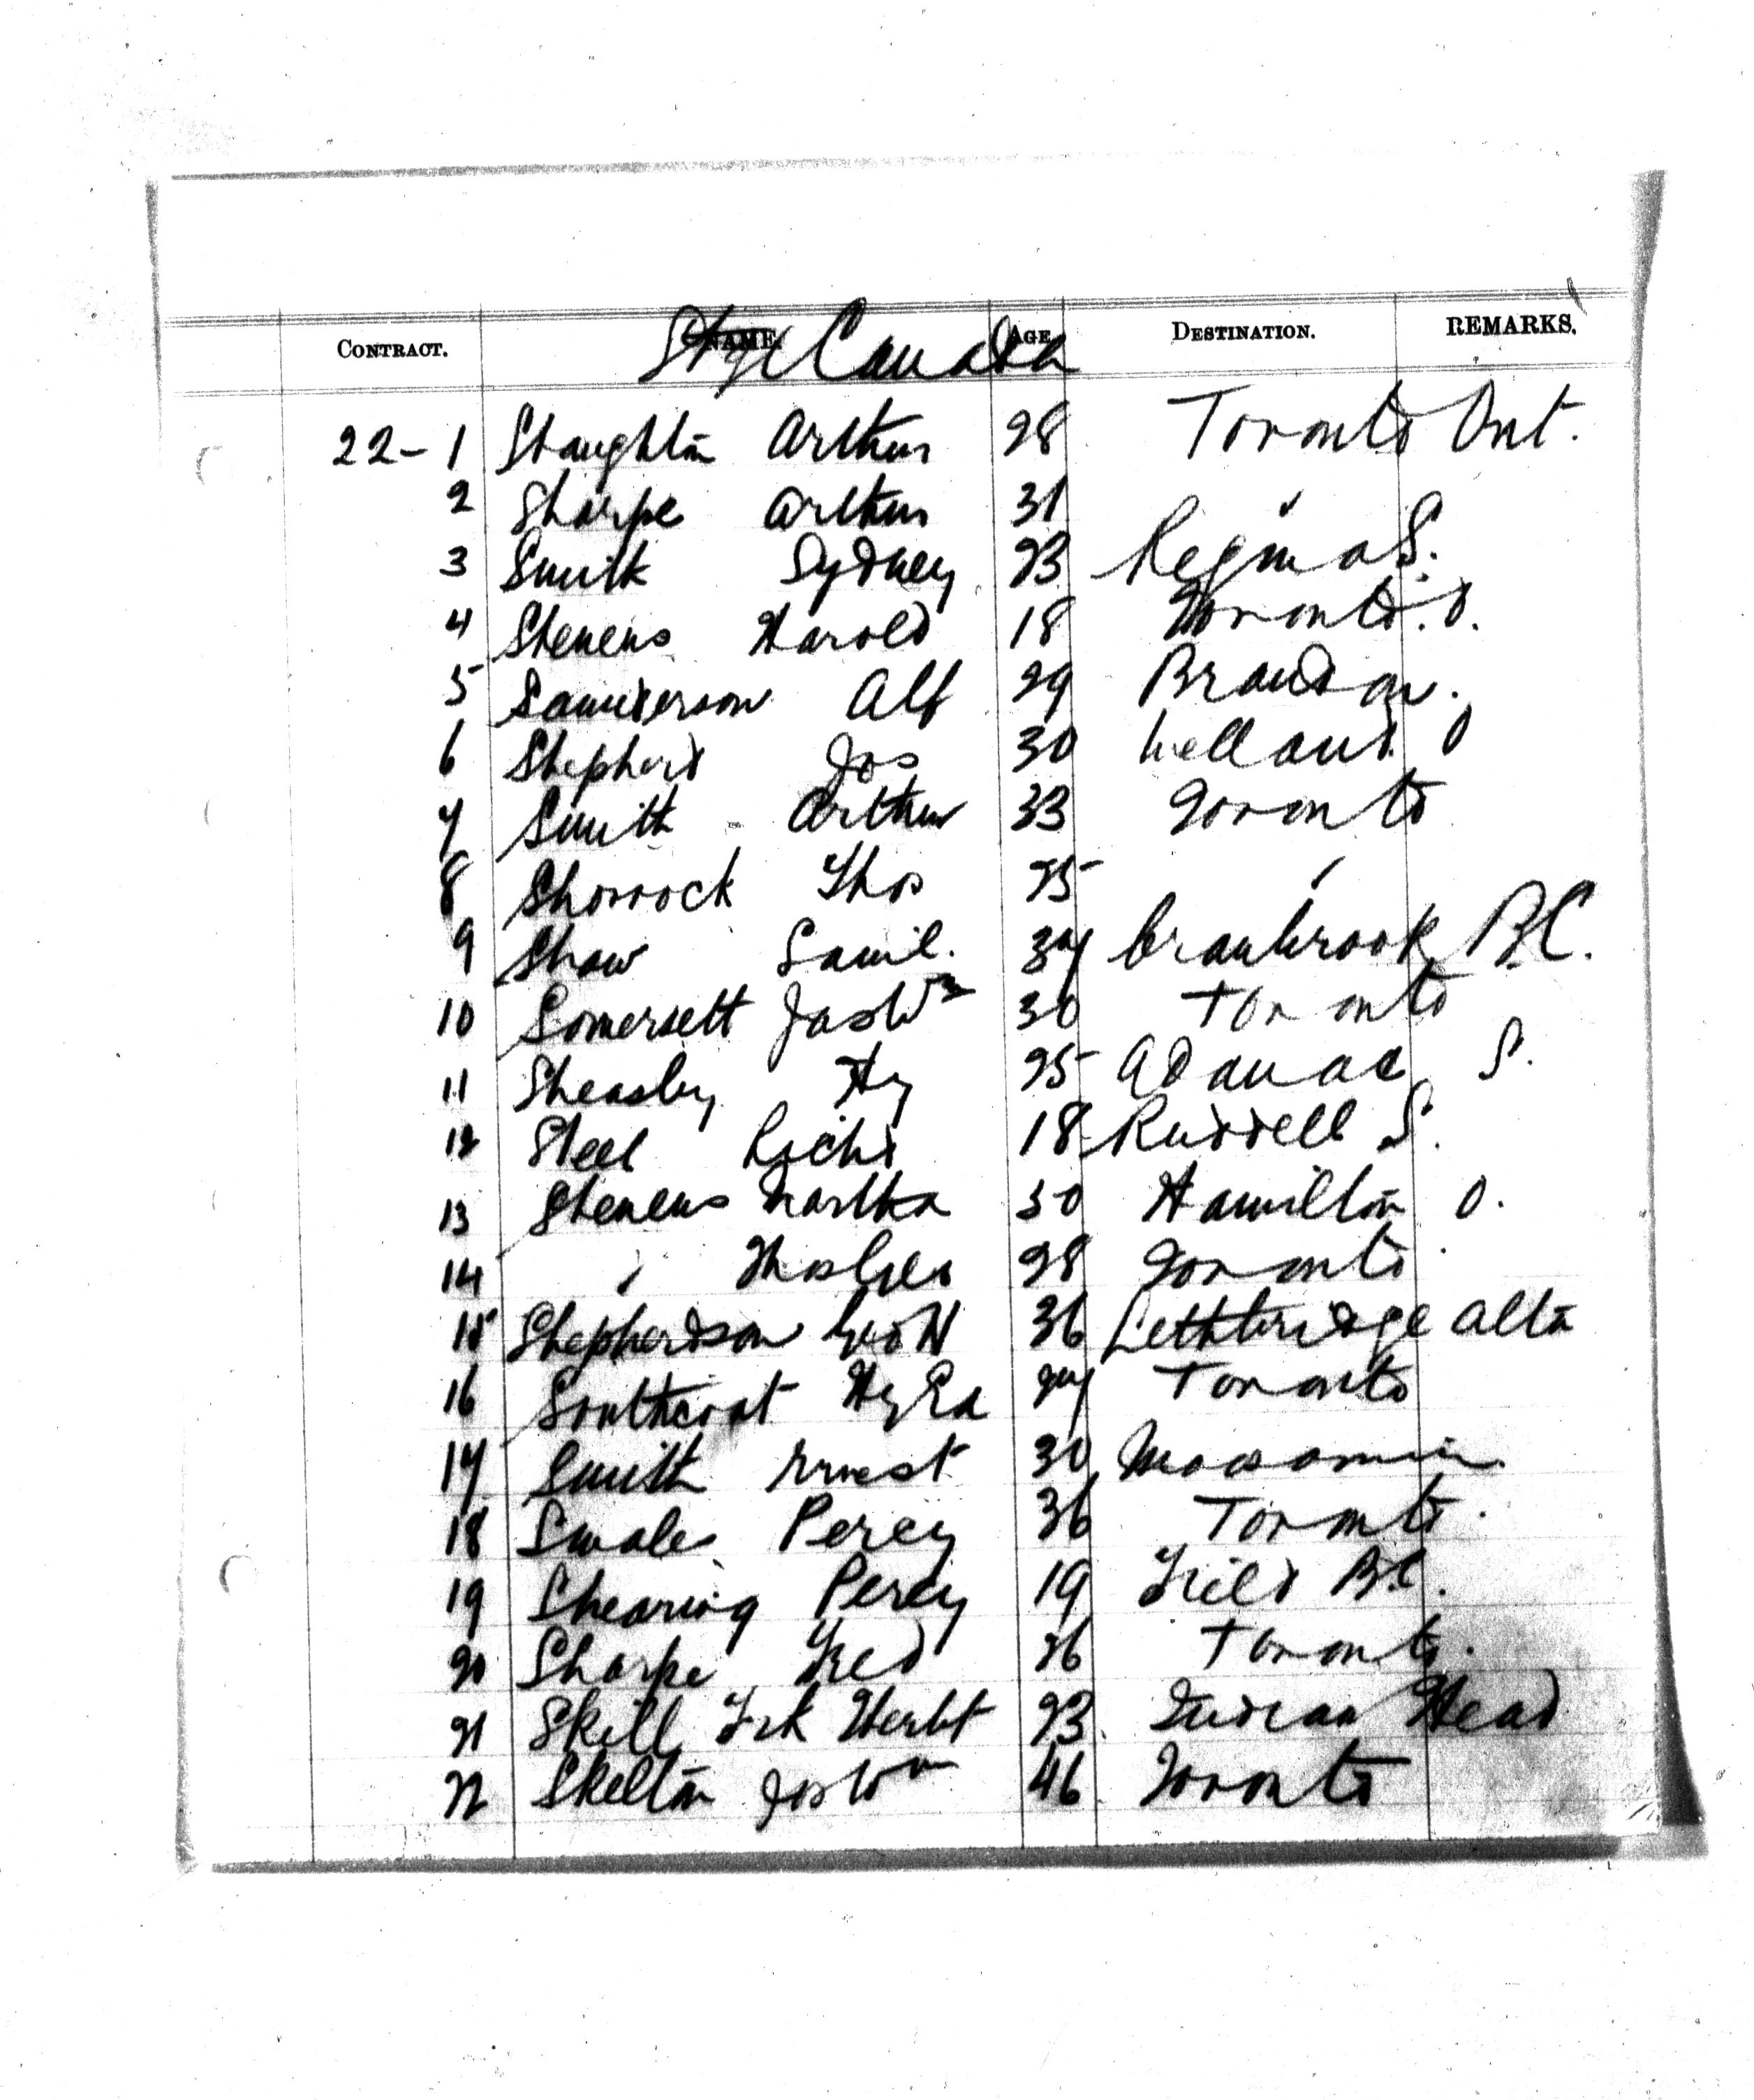 CONTRACT. NAME. AGE DESTINATION. REMARKS.
Stge Canada
22-1 Staughton Arthur 28 Toronto Ont.
2 Sharpe Arthur 31 "
3 Smith Sydney 23 Regina S.
4 Stevens Harold 18 Toronto. O.
5 Saunderson Alf 29 Brandon.
6 Shepherd Jos 30 Welland. O
7 Smith Arthur 33 Toronto
8 Shorrock Thos 25 "
9 Shaw Saml. 34 Cranbrook B.C.
10 Somersett Jas Wm 30 Toronto
11 Sheasby Hy 25 Adanac S.
12 Steel Richd 18 Ruddell S.
13 Stevens Martha 30 Hamilton O.
14 " 28 Toronto
15 Shepherdson Geo H 36 Lethbridge Alta
16 Southcoat Hy Ed Toronto
17 Smith Ernest 30
18 Swales Percy 36 Toronto.
19 Shearing Percy 19 Field B.C.
20 Sharpe Fred 26 Toronto.
21 Skill Frk Herbt 23 Indian Head
22 Skelton Jos Wm 46 Toronto